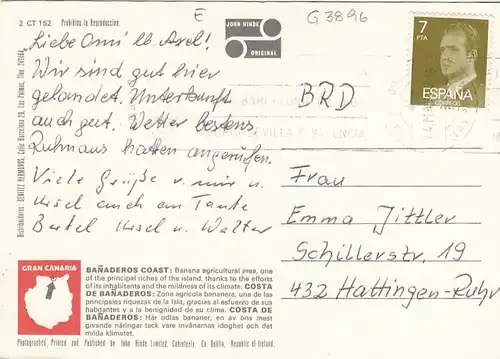 2 CT 152 Prohibida la Reproduccion.
E
G 3896
JOHN HINDE
ORIGINAL
7
PTA
ESPAÑA
CORREOS
Liebe Omi lb. Axel!
Wir sind gut hier
gelandet. Unterkunft
auch gut. Wetter bestens
Ruhnaus hatten angerufen.
Viele Grüße v. mir u.
Ursel auch an Tante
Bertel Ursel u. Walter
BRD
SEVILLA Y VALENCIA
Frau
Emma Jittler
Schillerstr. 19
432 Hattingen-Ruhr
Distribuidores: BENITEZ HERMANOS, Calle Barcelona 28, Las Palmas,
GRAN CANARIA
BAÑADEROS COAST: Banana agricultural area, one
of the principal riches of the island, thanks to the efforts
of its inhabitants and the mildness of its climate. COSTA
DE BAÑADEROS: Zona agricola bananera, una de las
principales riquezas de la Isla, gracias al esfuerzo de sus
habitantes y a la benignidad de su clima. COSTA DE
BAÑADEROS: Här odlas bananer, en av öns mest
givende näringar tack vare invånarnas idoghet och det
milda klimatet.
Photographed, Printed and Published by John Hinde Limited, Cabinteely, Co. Dublin, Republic of Ireland.